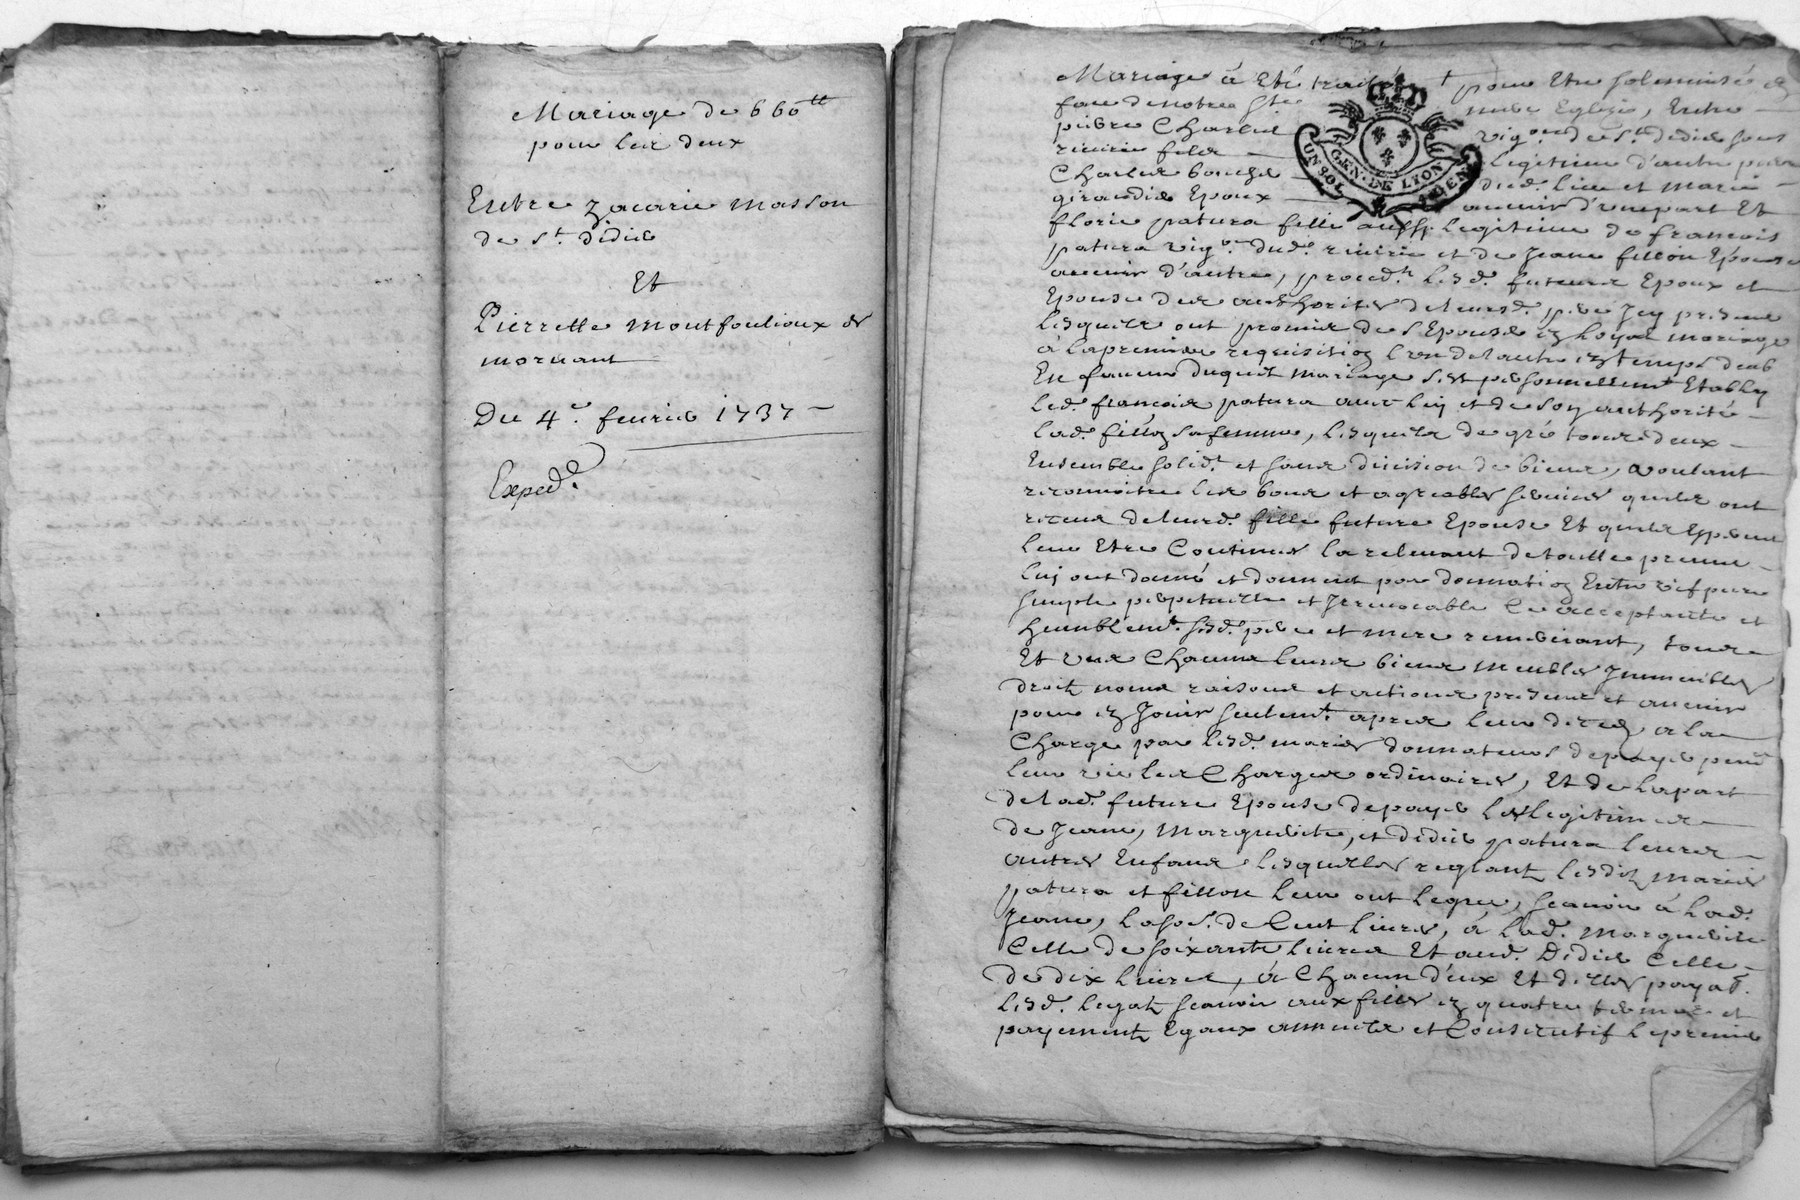 Mariage de 660ᵗᵗ
pour les deux
Entre Zacarie Masson
de St. Didie
Et
Pierrette Montfoulioux de
mornant
Du 4e. feurie 1737
Exped.
Mariage a Eté traité pour Etre solemnisé en
face de notre Ste mere Eglise, Entre
pierre Charles vigon. de St. didie sous
riuirie fils legitime d'autre pierre
Charles bouche dud. lieu et marie
giraudie Epoux auenir d'vne part Et
UN SOL GEN. DE LYON DEN
florie patura fille aussy legitime de francois
patura vigon. dud. riuirie et de Jeane fillon Epouse
auenir d'autre, proced.t lesd. futeurs Epoux et
Epouse des authorités de leursd. pere Icy presens
lesquels ont promis de s'Epouser en loyal mariage
à la premiere requisition l'un de l'autre en temps deub
En faueur duquel mariage s'est personnellemt. Etably
led. francois patura auec luy et de son authorité
lad. fillon sa femme, lesquels de gré tous deux
Ensemble solid.t et sans diuision de biens, voulant
reconnoitre les bons et agreables seruices quils ont
receus de leurd. fille future Epouse Et quils Esperent
leur Etre Continués la releuant de toutte preuue
luy ont donné et donnent par donnation Entre vifs pure
simple perpetuelle et Irreuocable Ce acceptante et
humblemt. sesd. pere et mere remerciant, tous
Et vns Chacuns leurs biens meubles Immeubles
droits noms raisons et actions presens et auenir
pour en Jouir seulemt. apres leur deces, a la
Charge par lesd. mariés donnateurs de payer pendt.
leur vie les Charges ordinaires, Et de la part
de lad. future Epouse de payer les legitimes
de Jeane, Marguerite, et Didie patura leurs
autres Enfans lesquelles reglant lesdits mariés
patura et fillon leur ont legué, scauoir à lad.
Jeane, la so. de Cent liures, à lad. Marguerite
Celle de soixante liures Et aud. Didie Celle
de dix liures, à Chacun d'eux Et d'Elles payab.
lesd. legats scauoir aux filles en quatre termes et
payements Egaux annuels et Consecutifs le premier